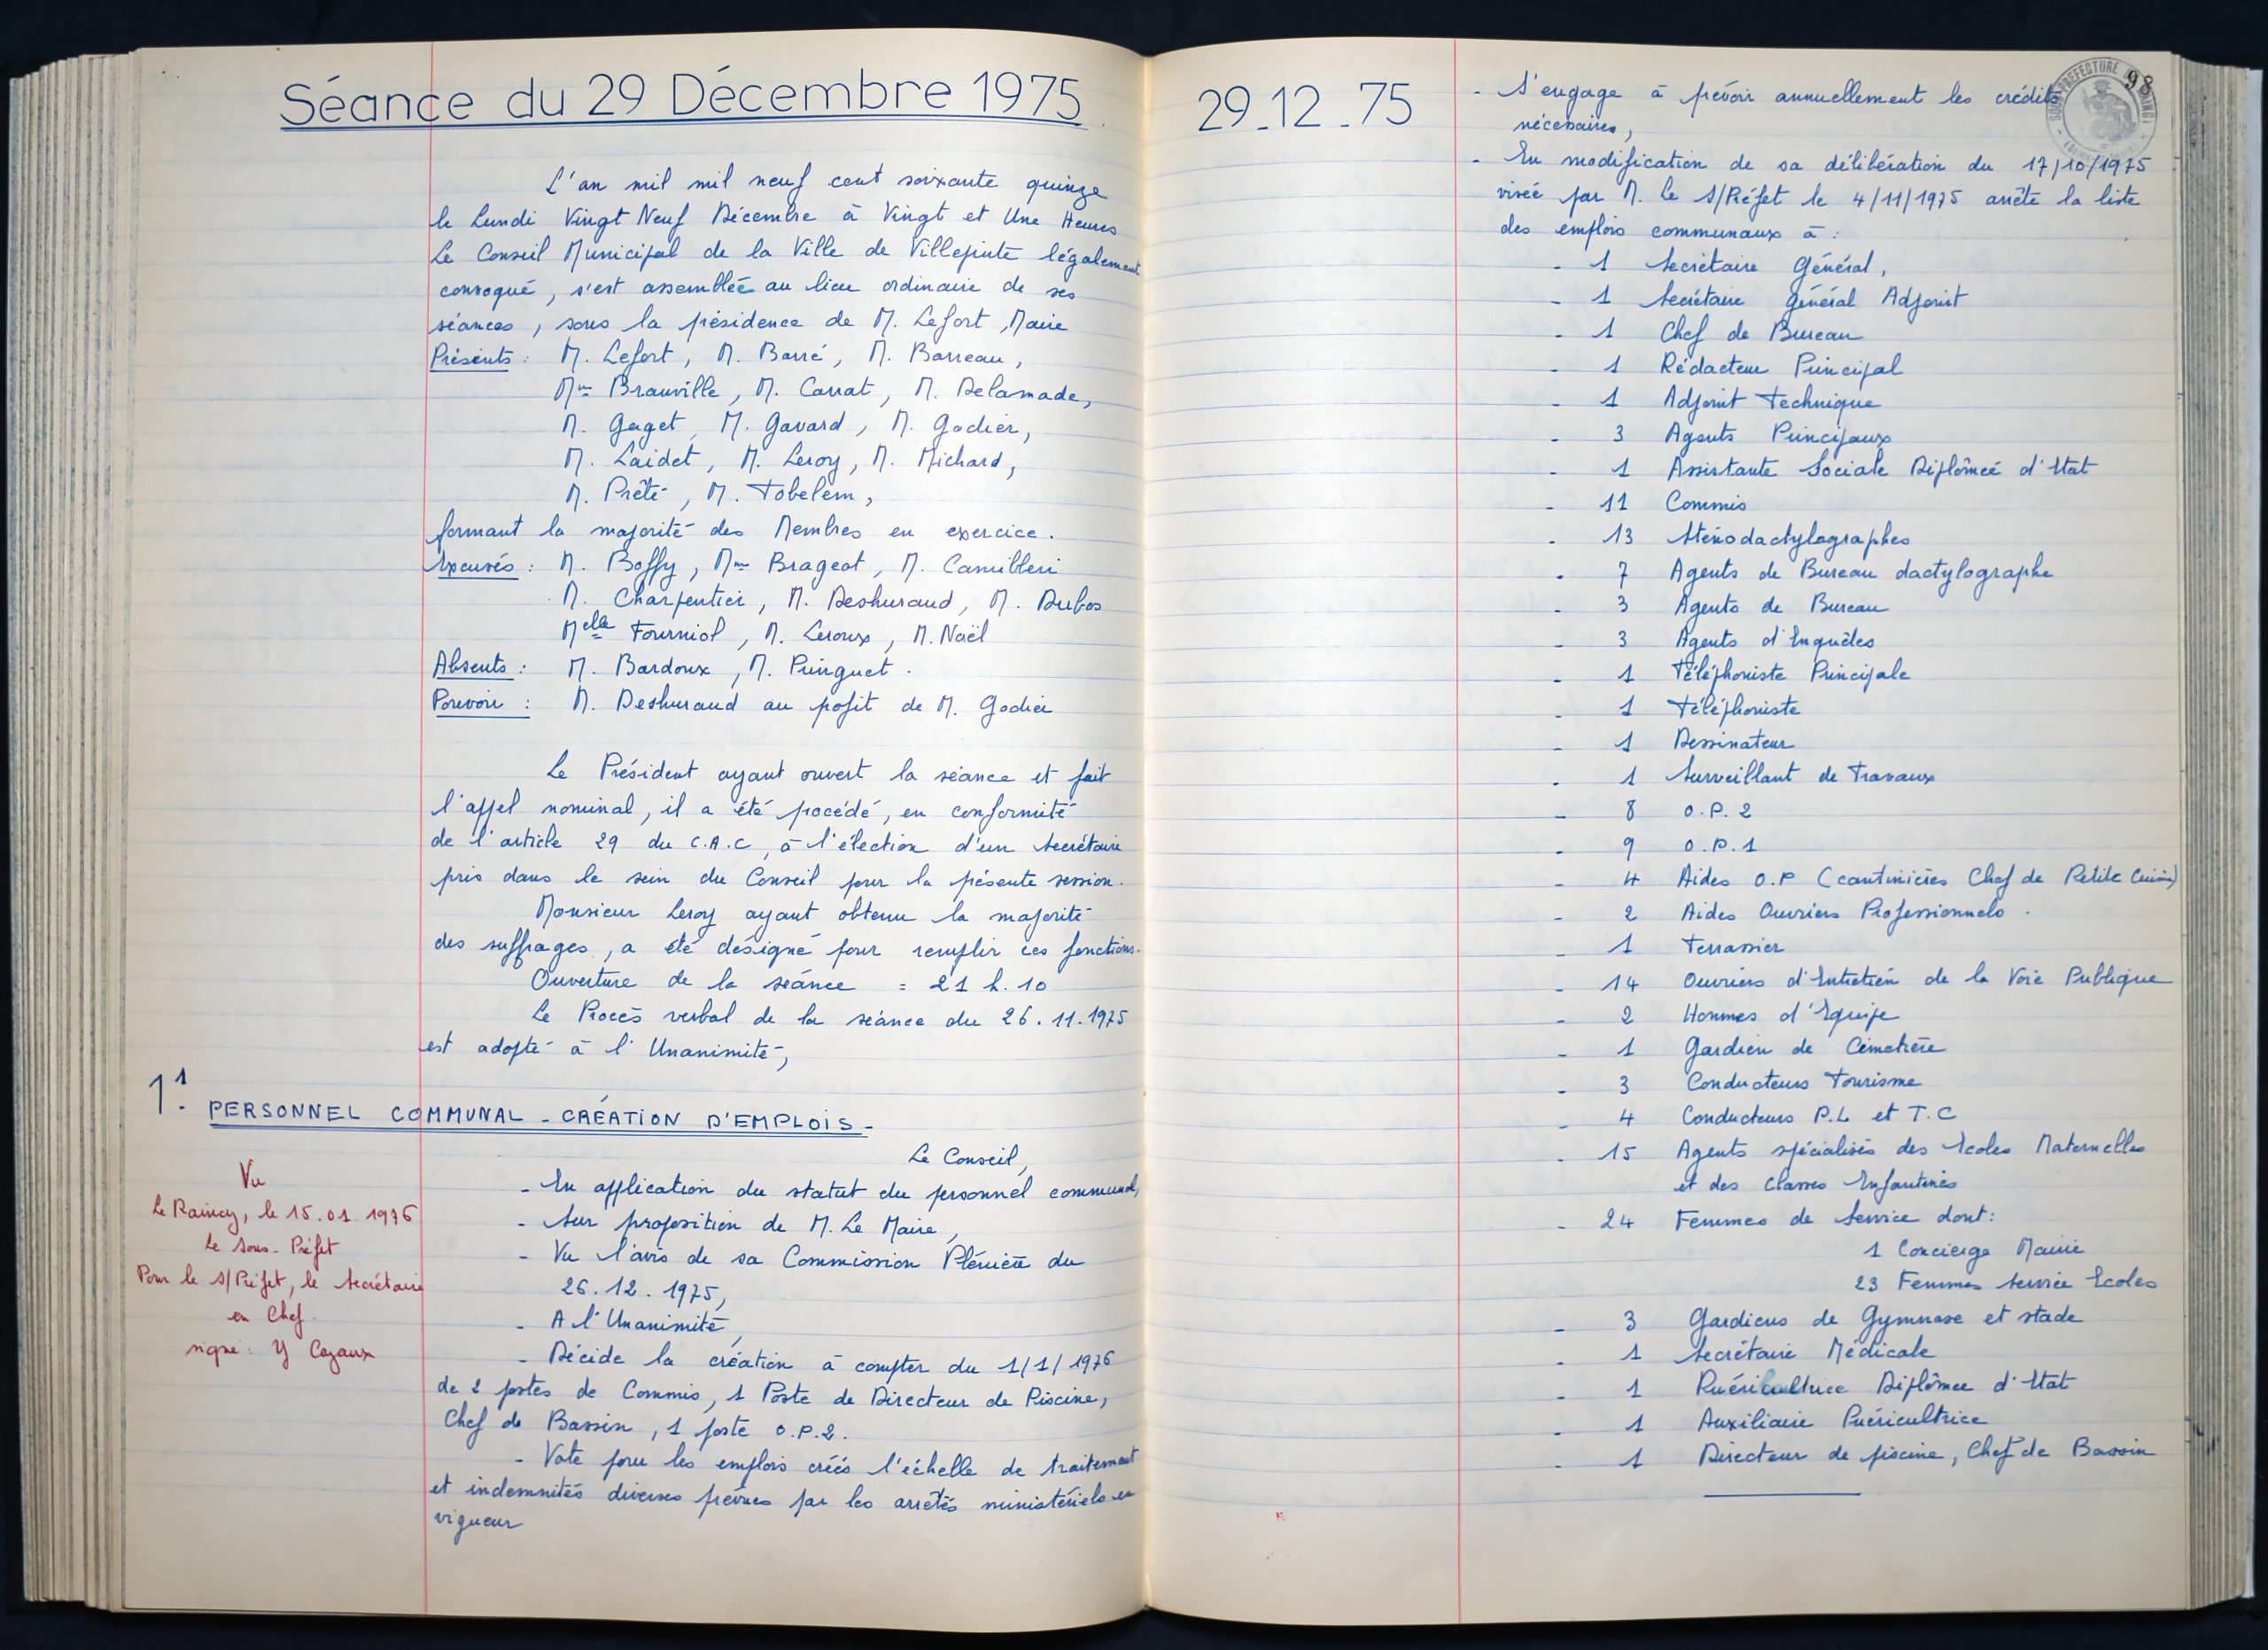 Séance du 29 Décembre 1975
L'an mil mil neuf cent soixante quinze
le Lundi Vingt Neuf Décembre à Vingt et Une Heures
Le Conseil Municipal de la Ville de Villepinte légalement
convoqué, s'est assemblée au lieu ordinaire de ses
séances, sous la présidence de M. Lefort, Maire
Présents : M. Lefort, M. Barré, M. Barreau,
Mme Brauville, M. Carrat, M. Delamade,
M. Gaget, M. Gavard, M. Godier,
M. Laidet, M. Leroy, M. Michard,
M. Prêté, M. Tobelem,
formant la majorité des Membres en exercice.
Excusés : M. Boffy, Mme Brageot, M. Camilleri
M. Charpentier, M. Deshuraud, M. Dubos
Melle Fourniol, M. Leroux, M. Naël
Absents : M. Bardoux, M. Puinguet.
Pouvoir : M. Deshuraud au profit de M. Godier
Le Président ayant ouvert la séance et fait
l'appel nominal, il a été procédé, en conformité
de l'article 29 du C.A.C, à l'élection d'un Secrétaire
pris dans le sein du Conseil pour la présente session.
Monsieur Leroy ayant obtenu la majorité
des suffrages, a été désigné pour remplir ces fonctions.
Ouverture de la séance = 21 h. 10
Le Procès verbal de la séance du 26.11.1975
est adopté à l'Unanimité,
1.1 PERSONNEL COMMUNAL - CRÉATION D'EMPLOIS -
Le Conseil,
- En application du statut du personnel communal,
- Sur proposition de M. Le Maire,
- Vu l'avis de sa Commission Plénière du
26.12.1975,
- A l'Unanimité,
- Décide la création à compter du 1/1/1976
de 2 postes de Commis, 1 Poste de Directeur de Piscine,
Chef de Bassin, 1 poste O.P.2.
- Vote pour les emplois créés l'échelle de traitement
et indemnités diverses prévues par les arrêtés ministériels en
vigueur
Vu
Le Raincy, le 15.01.1976
Le Sous-Préfet
Pour le S/Préfet, le Secrétaire
en Chef.
signé : Y Cazaux
29.12.75
98
SOUS-PRÉFECTURE
- S'engage à prévoir annuellement les crédits
nécessaires,
- En modification de sa délibération du 17/10/1975
visée par M. Le S/Préfet le 4/11/1975 arrête la liste
des emplois communaux à :
- 1 Secrétaire Général,
- 1 Secrétaire Général Adjoint
- 1 Chef de Bureau
- 1 Rédacteur Principal
- 1 Adjoint Technique
- 3 Agents Principaux
- 1 Assistante Sociale Diplômée d'Etat
- 11 Commis
- 13 Sténodactylographes
- 7 Agents de Bureau dactylographe
- 3 Agents de Bureau
- 3 Agents d'Enquêtes
- 1 Téléphoniste Principale
- 1 Téléphoniste
- 1 Dessinateur
- 1 Surveillant de Travaux
- 8 O.P.2
- 9 O.P.1
- 4 Aides O.P (cantinières Chef de Petite Cuisine)
- 2 Aides Ouvriers Professionnels.
- 1 Terrassier
- 14 Ouvriers d'Entretien de la Voie Publique
- 2 Hommes d'Equipe
- 1 Gardien de Cimetière
- 3 Conducteurs Tourisme
- 4 Conducteurs P.L et T.C
- 15 Agents spécialisés des Ecoles Maternelles
et des Classes Enfantines
- 24 Femmes de Service dont :
1 Concierge Mairie
23 Femmes service Ecoles
- 3 Gardiens de Gymnase et stade
- 1 Secrétaire Médicale
- 1 Puéricultrice Diplômée d'Etat
- 1 Auxiliaire Puéricultrice
- 1 Directeur de piscine, Chef de Bassin